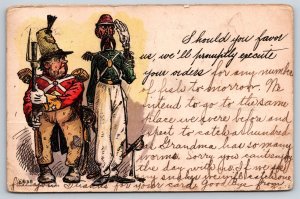 Should you favor
us, we'll promptly execute
your orders for any number
of fish to morrow. We
intend to go to the same
place we were before and
expect to catch a hundred
as Grandma has so many
worms. Sorry you can't
day with
for your card. Good bye from